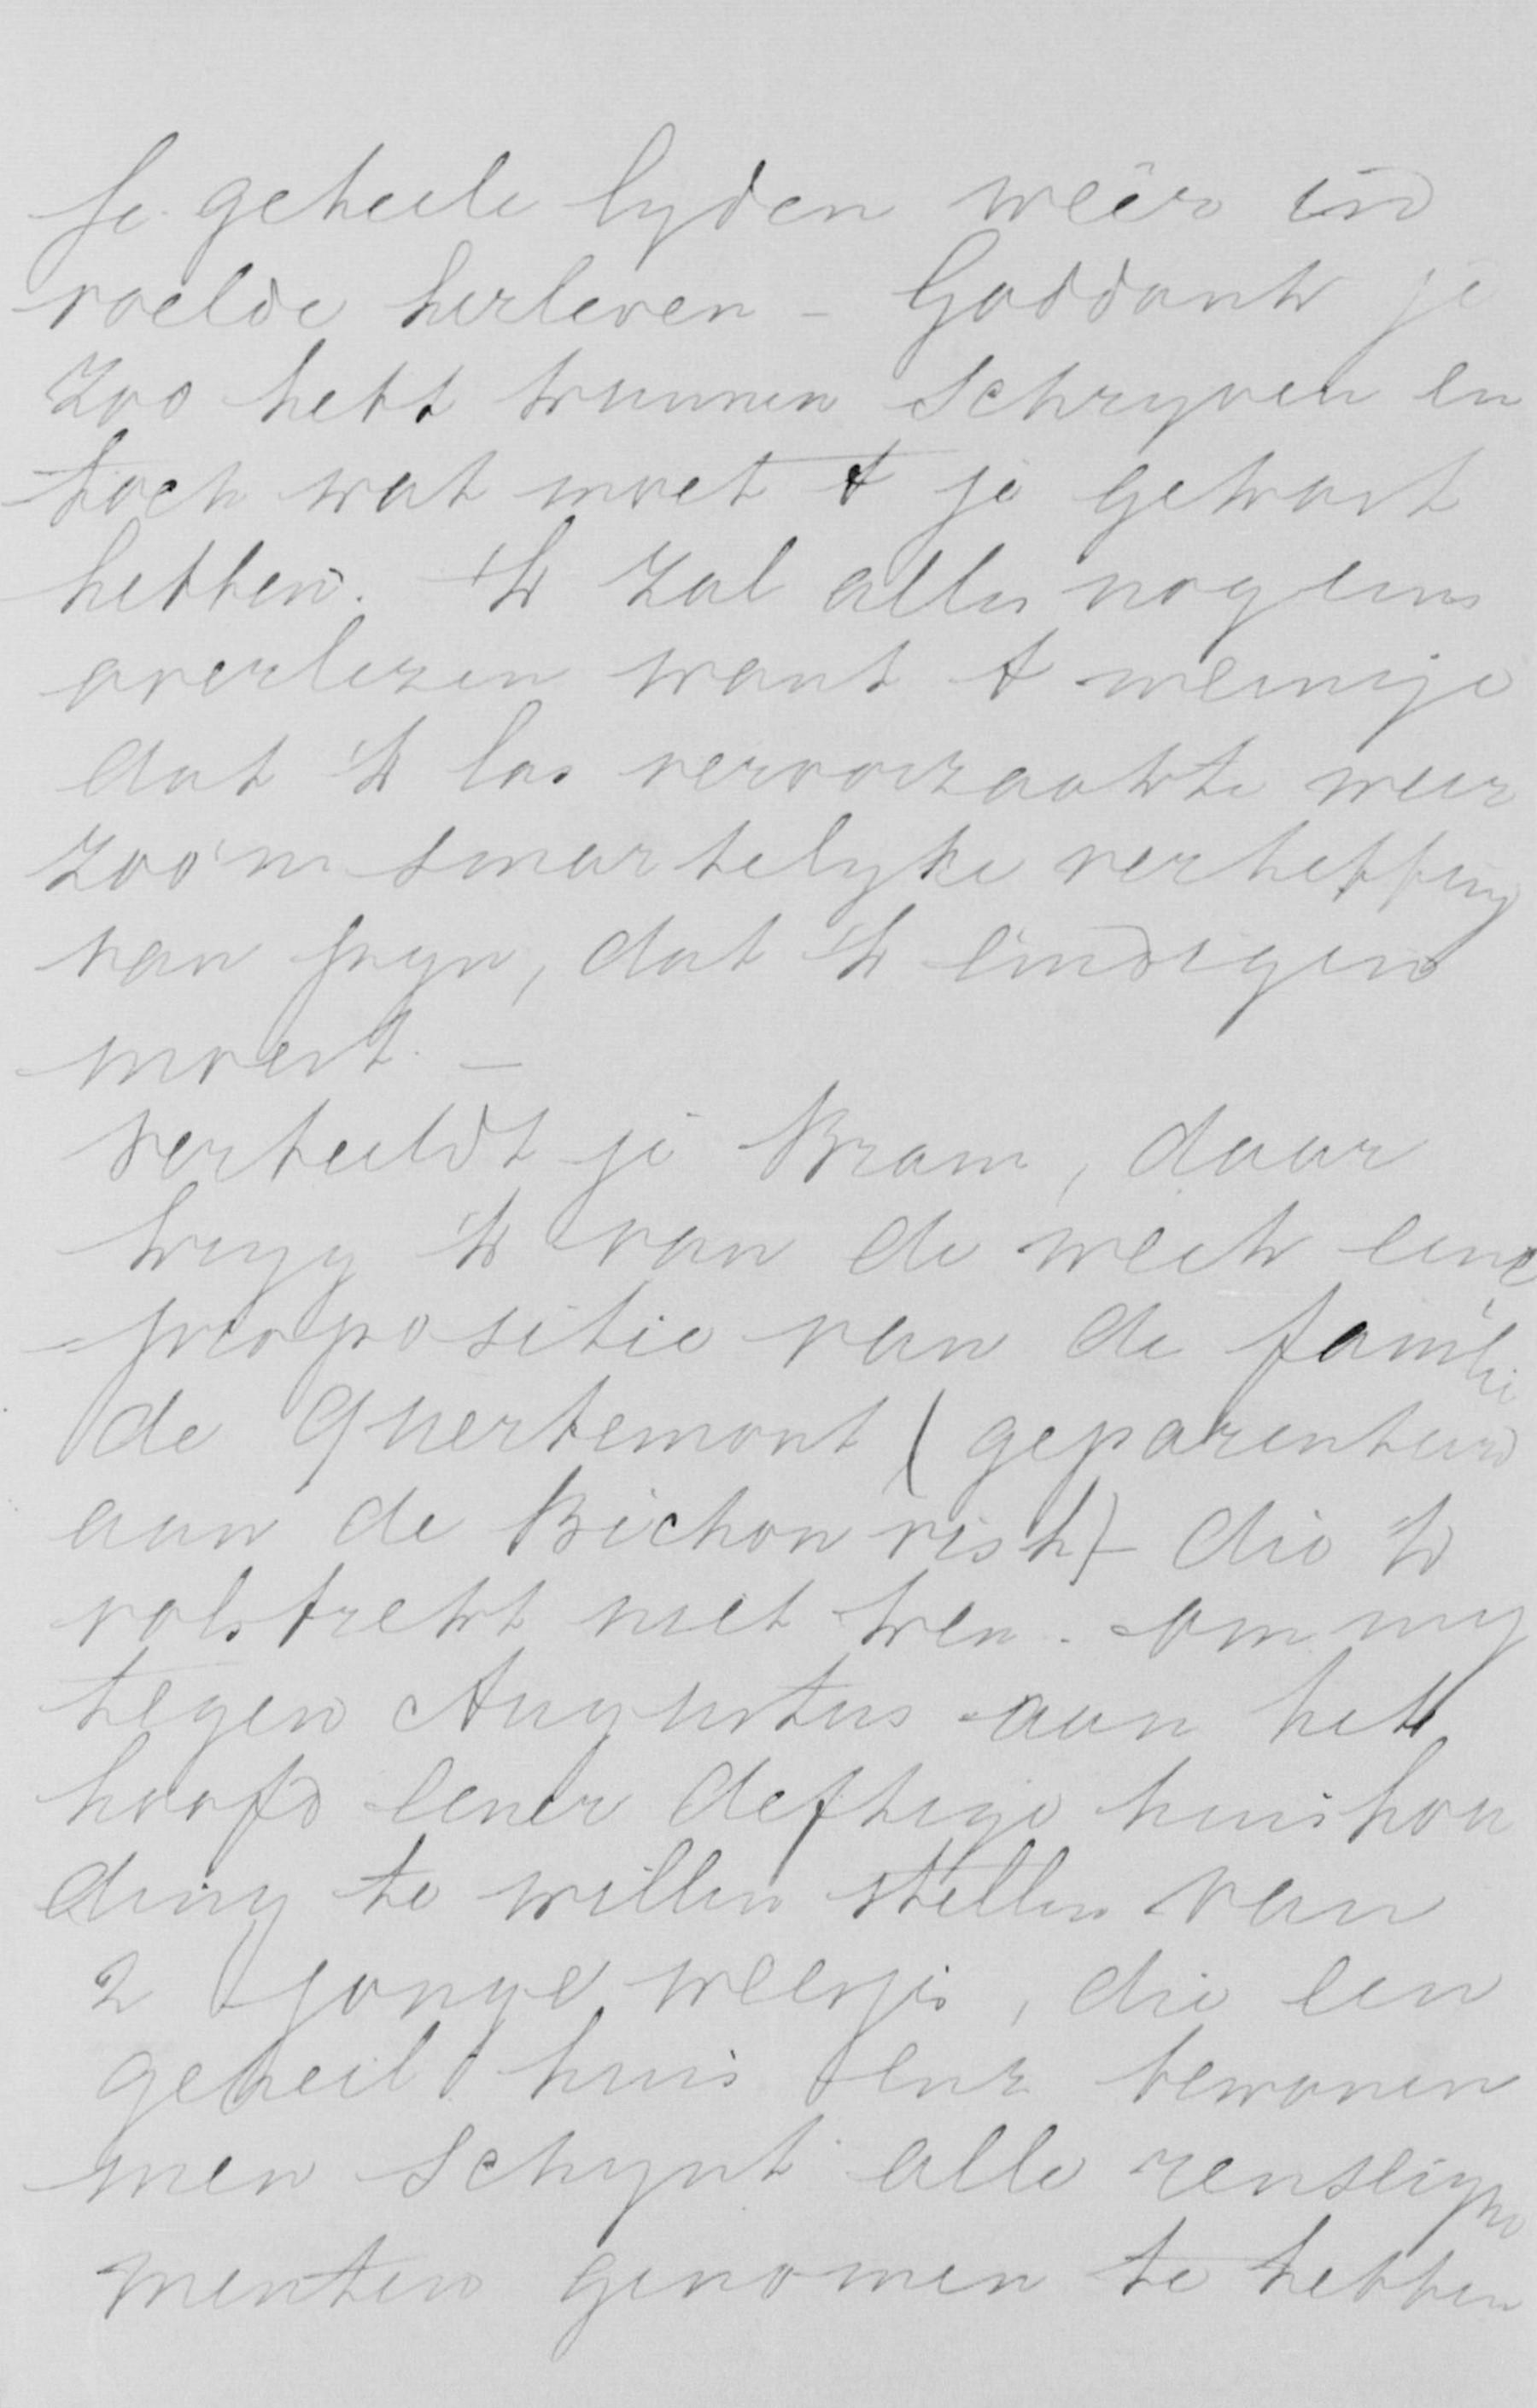 je geheele lyden weêr in
voelde herleven – Goddank je
zoo hebt kunnen schryven en
toch wat moet t je gekost
hebben. Ik zal alles nog eens
overlezen want t weinige
dat ik las veroorzaakte weer
zoo'n smartelyke verheffing
van pyn, dat ik eindigen
moest. –
Verbeeldt je Bram, daar
kryg ik van de week eene
propositie van de familie
de Quertemont (geparenteerd
aan de Bichon Visch) – die ik
volstrekt niet ken – om my
tegen Augustus aan het
hoofd eener deftige huishou
ding te willen stellen van
2 jonge weesjes, die een
geheel huis enz bewonen
men schynt alle renseigne
menten genomen te hebben